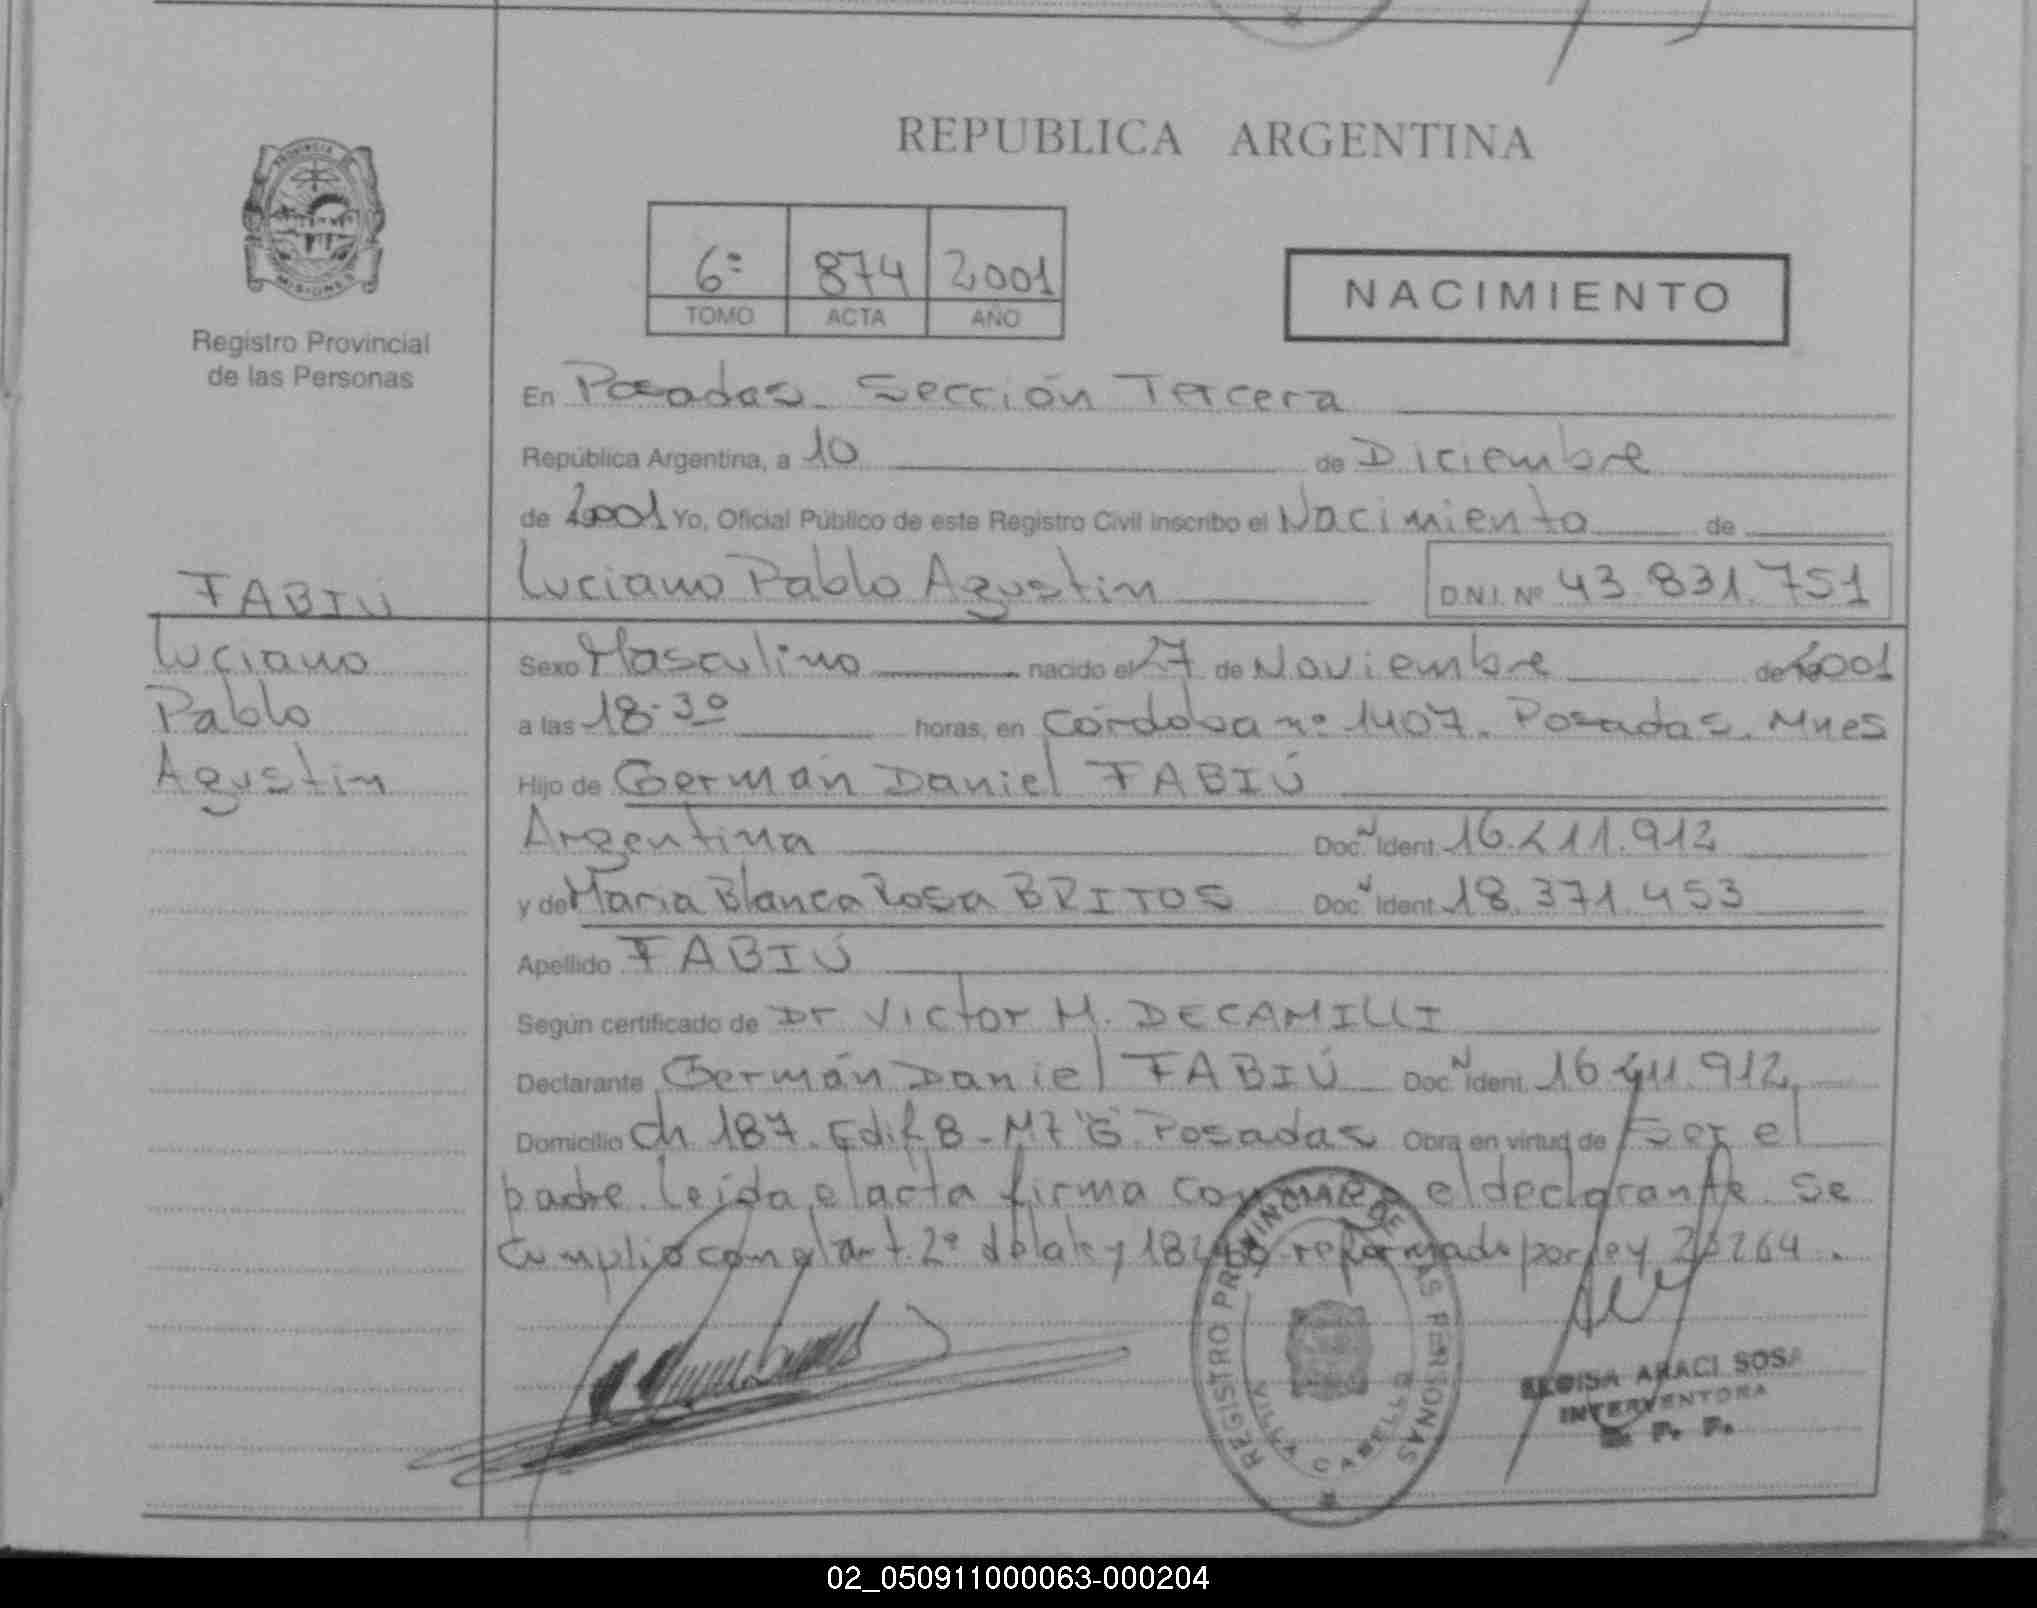 REPUBLICA ARGENTINA
PROVINCIA
MISIONES
Registro Provincial
de las Personas
6º 874 2001
TOMO ACTA AÑO
NACIMIENTO
En Posadas. Sección Tercera
República Argentina, a 10 de Diciembre
de 2001 Yo, Oficial Público de este Registro Civil inscribo el Nacimiento de
Luciano Pablo Agustin D.N.I. Nº 43.831.751
FABIÚ
Luciano
Pablo
Agustin
Sexo Masculino nacido el 27 de Noviembre de 2001
a las 18.30 horas, en Córdoba nº 1407. Posadas. Mnes
Hijo de Germán Daniel FABIÚ
Argentina Doc. Ident. 16.211.912
y de Maria Blanca Rosa BRITOS Doc. Ident. 18.371.453
Apellido FABIÚ
Según certificado de Dr Victor M. DECAMILLI
Declarante Germán Daniel FABIÚ Doc. Ident. 16.211.912
Domicilio Ch 187. Edif 8 - Posadas Obra en virtud de Ser el
padre. Leida el acta firma con el declarante. Se
cumplió con el art. 2º reformado por ley 23264.
REGISTRO PROVINCIAL DE LAS PERSONAS
VILLA CABELLO
ELOISA ARACI SOSA
INTERVENTORA
R. P. P.
02_050911000063-000204